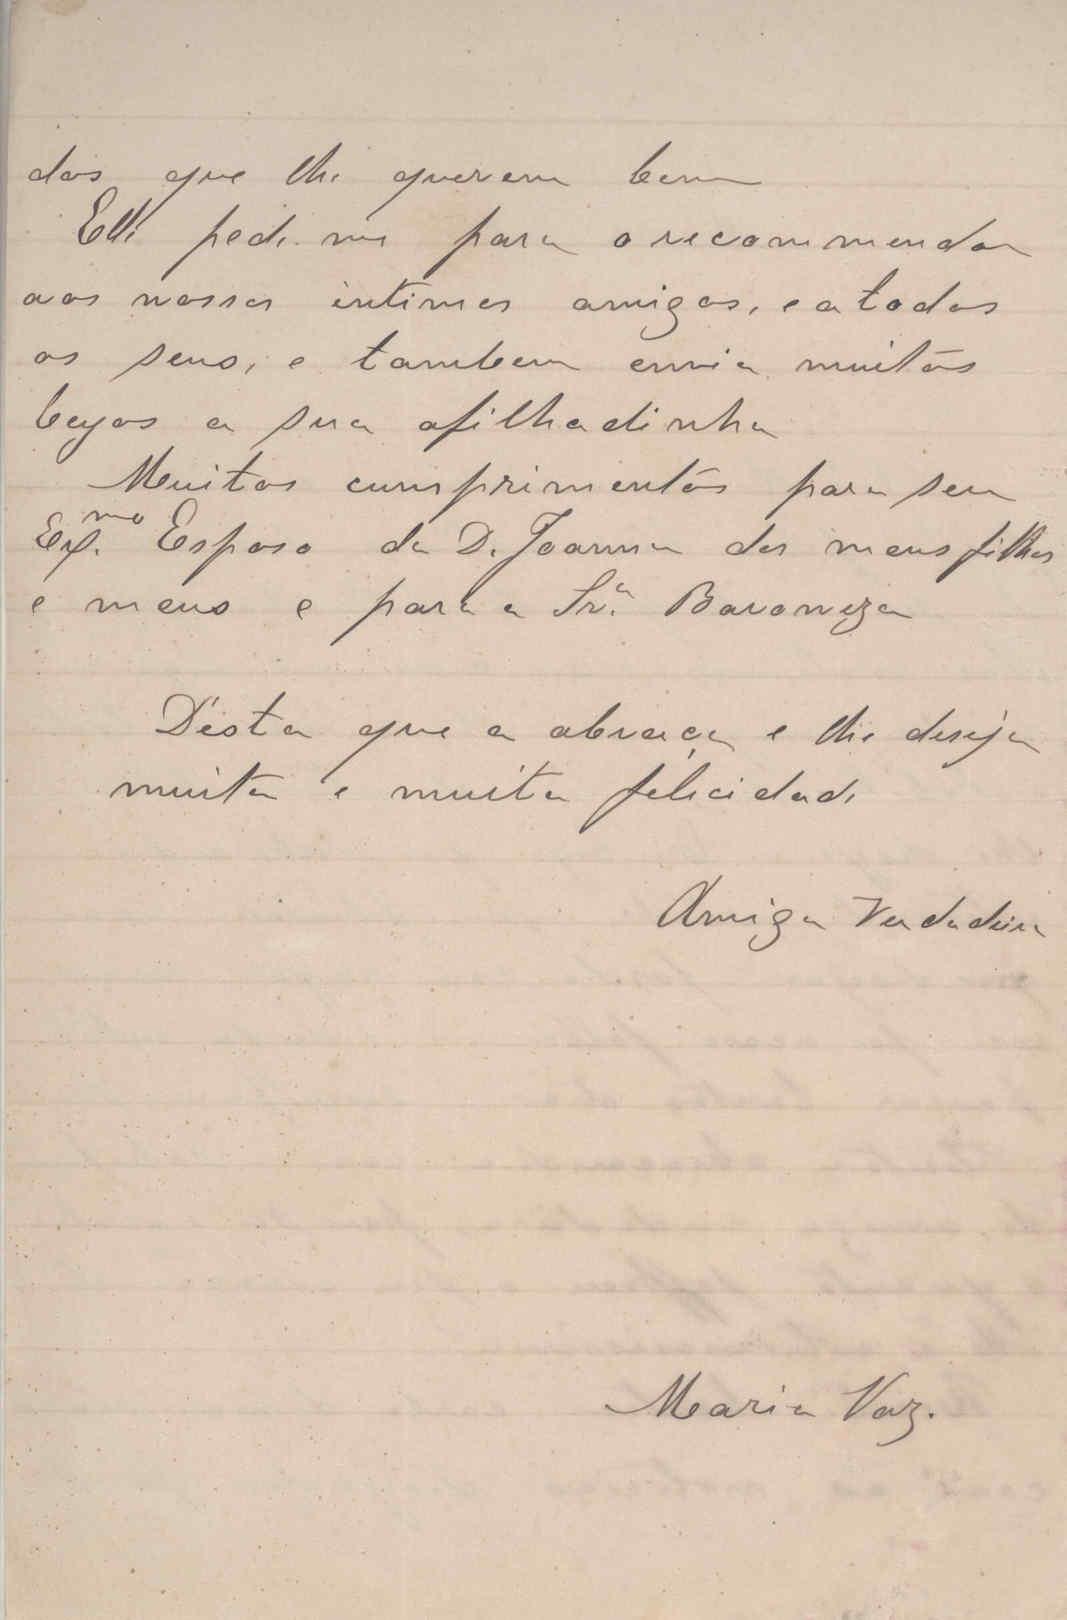 dos que lhe querem bem
Elle pede-me para o recommendar
aos nossos intimos amigos, e a todos
os seus, e tambem envia muitos
beijos a sua afilhadinha
Muitos cumprimentos para seu
Ex.mo Esposo da D. Joanna dos meus filhos
e meus e para a Sr.a Baroneza
D'ésta que a abraça e lhe deseja
muita e muita felicidade
Amiga Verdadeira
Maria Vaz.